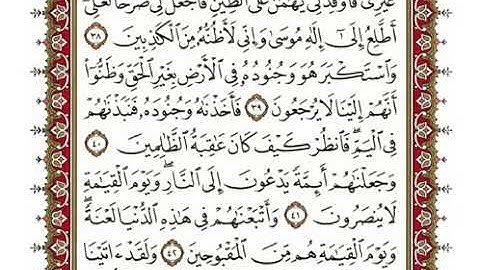 غَيْرِي فَأَوْقِدْ لِي يَٰهَٰمَٰنُ عَلَى ٱلطِّينِ فَٱجْعَل لِّي صَرْحًا لَّعَلِّيٓ
أَطَّلِعُ إِلَىٰٓ إِلَٰهِ مُوسَىٰ وَإِنِّي لَأَظُنُّهُۥ مِنَ ٱلْكَٰذِبِينَ ٣٨
وَٱسْتَكْبَرَ هُوَ وَجُنُودُهُۥ فِي ٱلْأَرْضِ بِغَيْرِ ٱلْحَقِّ وَظَنُّوٓا۟
أَنَّهُمْ إِلَيْنَا لَا يُرْجَعُونَ ٣٩ فَأَخَذْنَٰهُ وَجُنُودَهُۥ فَنَبَذْنَٰهُمْ
فِي ٱلْيَمِّ ۖ فَٱنظُرْ كَيْفَ كَانَ عَٰقِبَةُ ٱلظَّٰلِمِينَ ٤٠
وَجَعَلْنَٰهُمْ أَئِمَّةً يَدْعُونَ إِلَى ٱلنَّارِ ۖ وَيَوْمَ ٱلْقِيَٰمَةِ
لَا يُنصَرُونَ ٤١ وَأَتْبَعْنَٰهُمْ فِي هَٰذِهِ ٱلدُّنْيَا لَعْنَةً ۖ
وَيَوْمَ ٱلْقِيَٰمَةِ هُم مِّنَ ٱلْمَقْبُوحِينَ ٤٢ وَلَقَدْ ءَاتَيْنَا